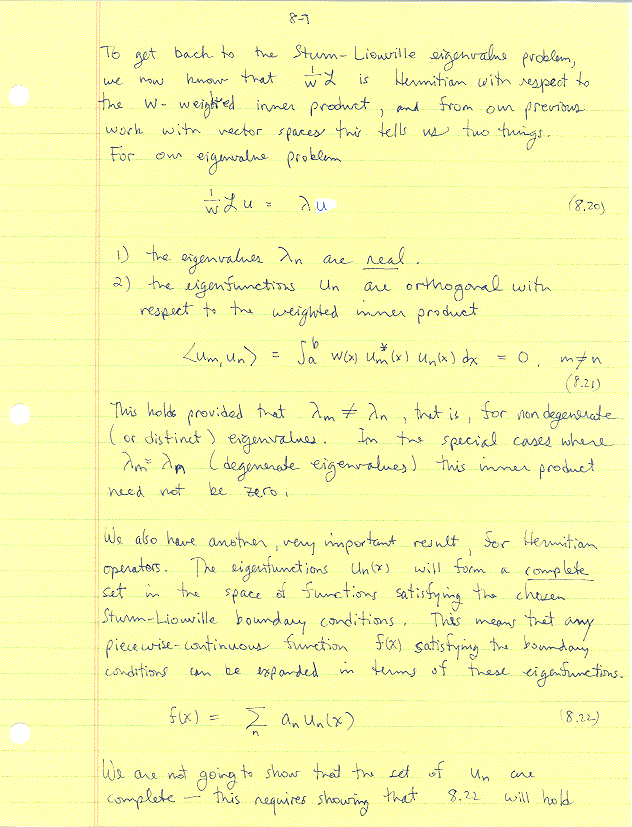 8-7
To get back to the Sturm-Liouville eigenvalue problem,
we now know that 1/w ℒ is Hermitian with respect to
the w-weighted inner product, and from our previous
work with vector spaces this tells us two things.
For our eigenvalue problem
1/w ℒ u = λ u (8.20)
1) the eigenvalues λn are real.
2) the eigenfunctions un are orthogonal with
respect to the weighted inner product
<um, un> = ∫_a^b w(x) um*(x) un(x) dx = 0. m≠n
(8.21)
This holds provided that λm ≠ λn, that is, for nondegenerate
(or distinct) eigenvalues. In the special cases where
λm = λn (degenerate eigenvalues) this inner product
need not be zero.
We also have another, very important result, for Hermitian
operators. The eigenfunctions un(x) will form a complete
set in the space of functions satisfying the chosen
Sturm-Liouville boundary conditions. This means that any
piecewise-continuous function f(x) satisfying the boundary
conditions can be expanded in terms of these eigenfunctions.
f(x) = Σ_n an un(x) (8.22)
We are not going to show that the set of un are
complete — this requires showing that 8.22 will hold